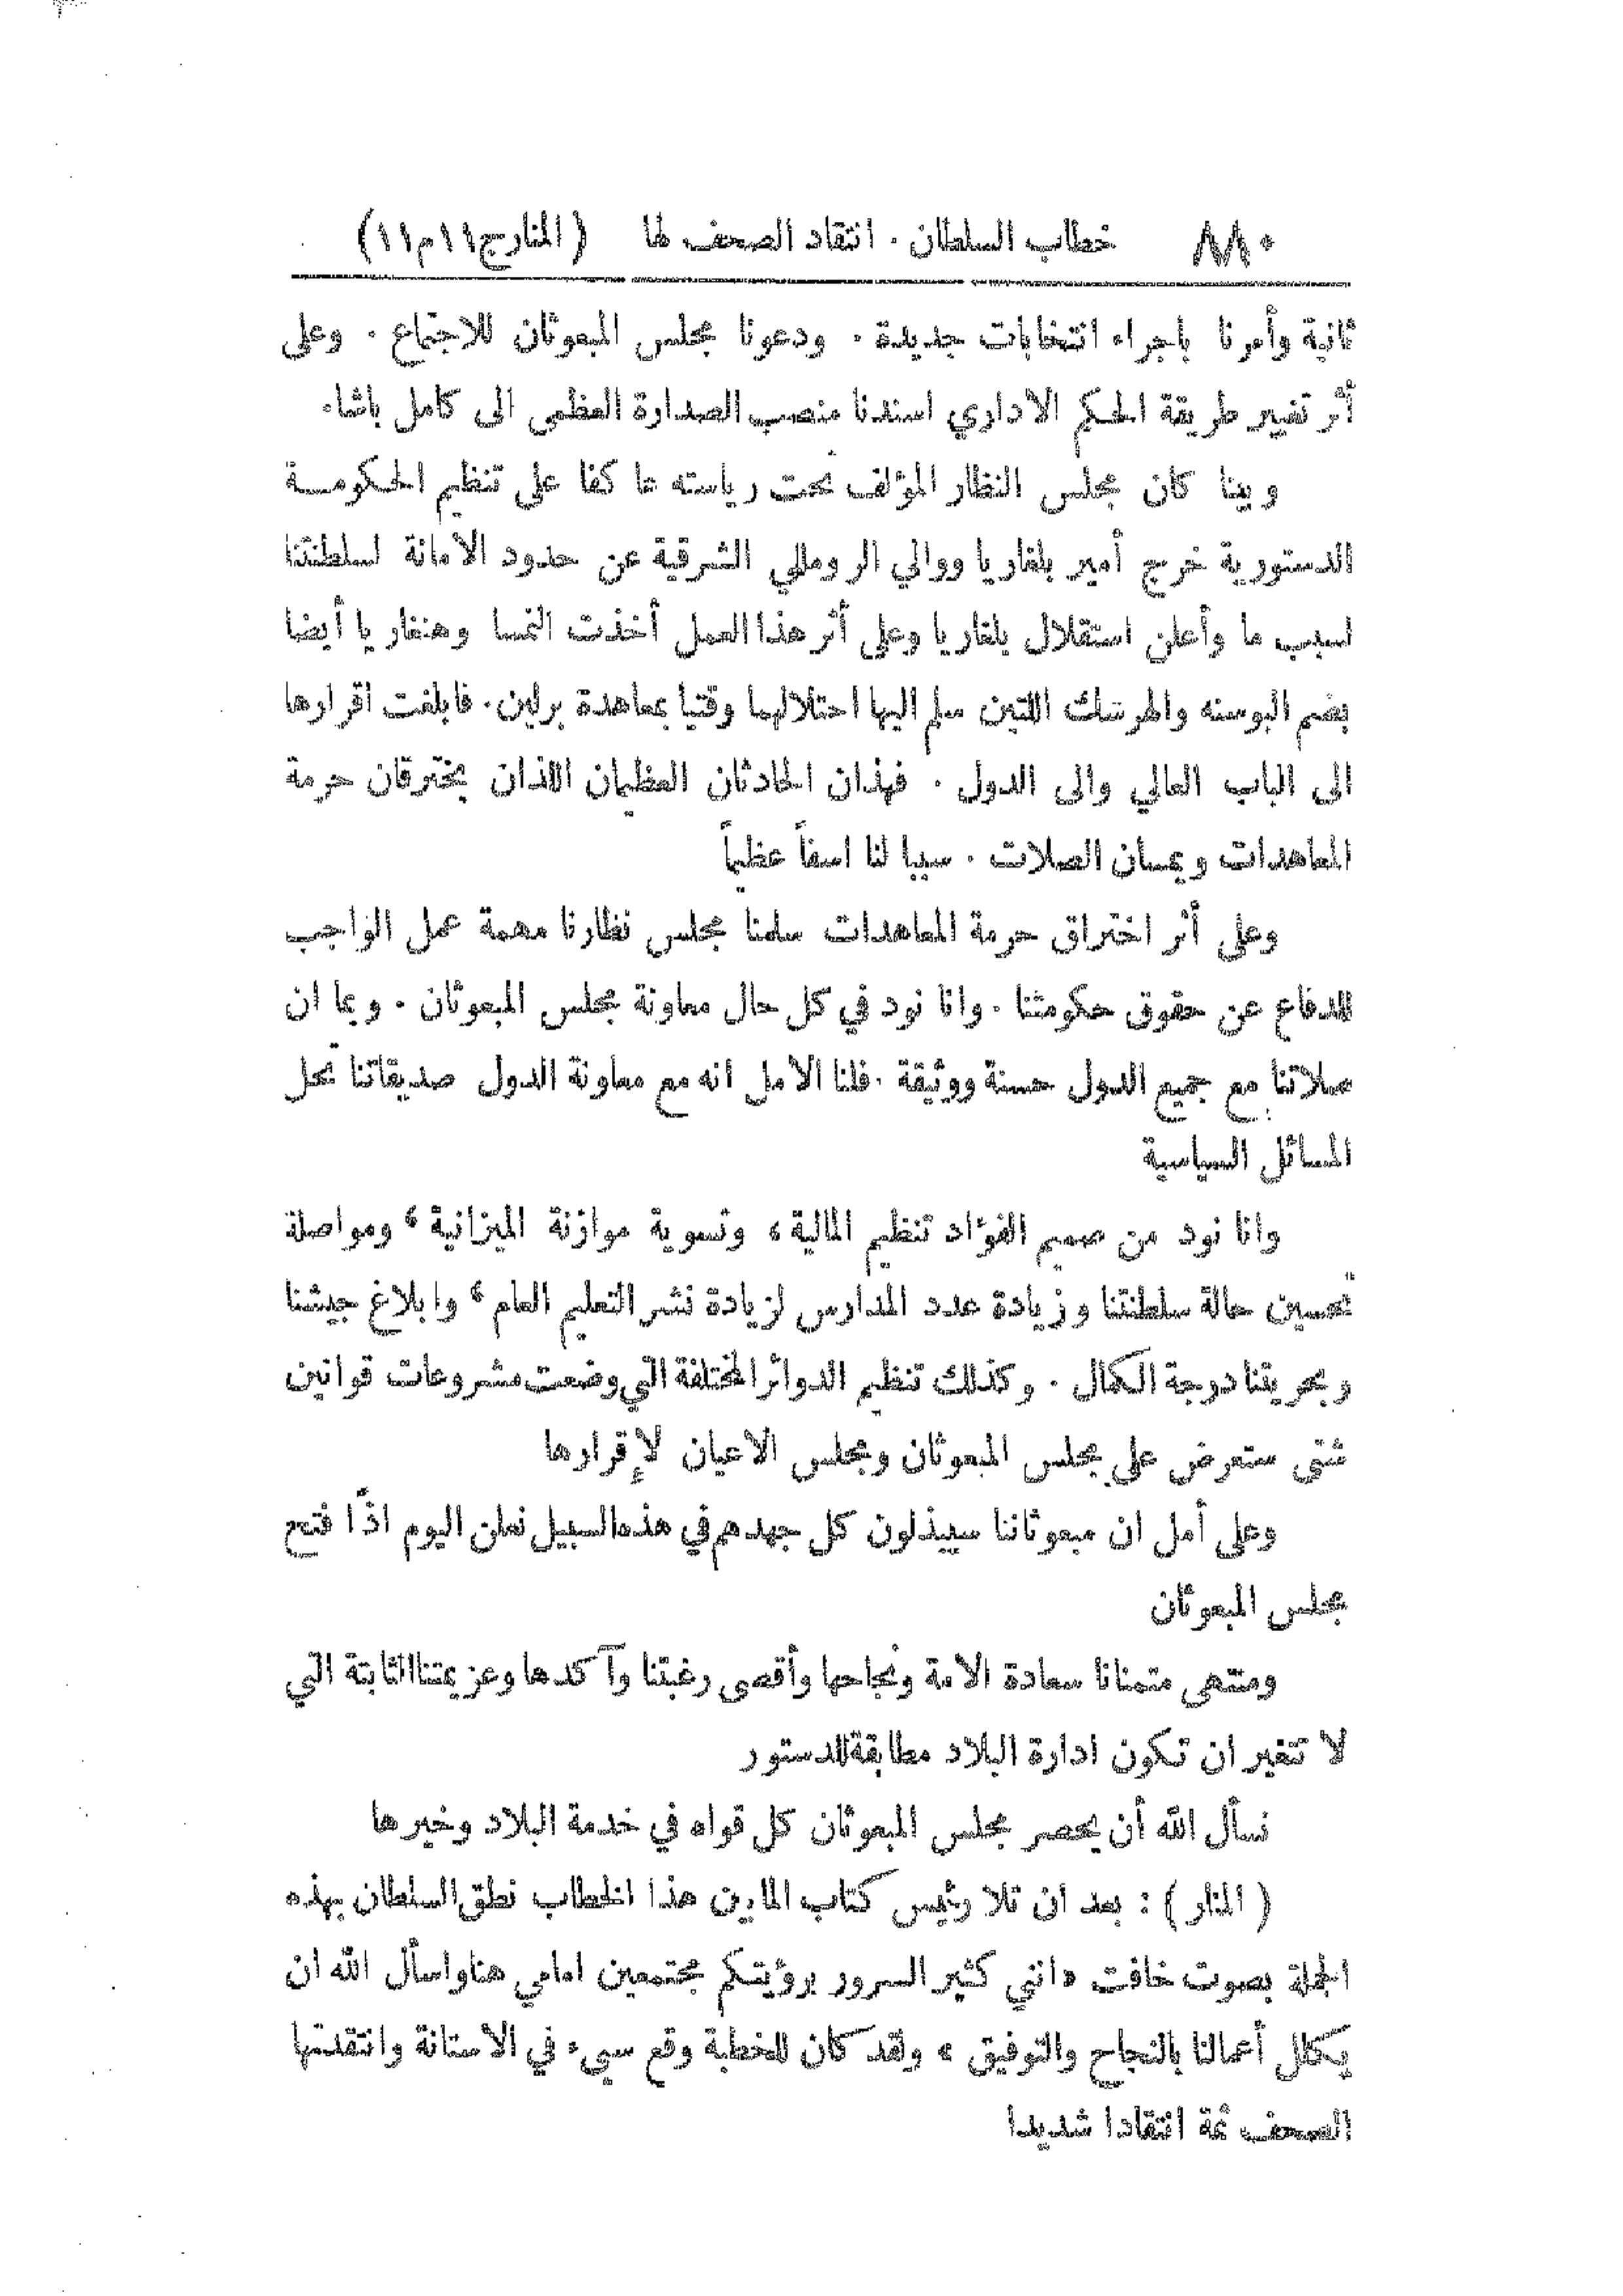 ٨٨٠ خطاب السلطان . انتقاد الصحف لها (المنارج١١م١١)
ثانية وأمرنا باجراء انتخابات جديدة . ودعونا مجلس المبعوثان للاجتماع . وعلى
أثر تغيير طريقة الحكم الاداري اسندنا منصب الصدارة العظمى الى كامل باشا.
وبينا كان مجلس النظار المؤلف تحت رياسته عاكفا على تنظيم الحكومة
الدستورية خرج أمير بلغاريا ووالي الروملي الشرقية عن حدود الأمانة لسلطنتنا
لسبب ما وأعلن استقلال بلغاريا وعلى أثر هذا العمل أخذت النمسا وهنغاريا أيضا
بضم البوسنه والهرسك اللتين سلم اليها احتلالهما وقتيا بمعاهدة برلين. فابلغت اقرارها
الى الباب العالي والى الدول . فهذان الحادثان العظيمان اللذان يخترقان حرمة
المعاهدات ويمسان الصلات . سببا لنا اسفاً عظيماً
وعلى أثر اختراق حرمة المعاهدات سلمنا مجلس نظارنا مهمة عمل الواجب
للدفاع عن حقوق حكومتنا . وانا نود في كل حال معاونة مجلس المبعوثان . وبما ان
صلاتنا مع جميع الدول حسنة ووثيقة . فلنا الأمل انه مع معاونة الدول صديقاتنا تحل
المسائل السياسية
وانا نود من صميم الفؤاد تنظيم المالية ، وتسوية موازنة الميزانية ، ومواصلة
تحسين حالة سلطنتنا وزيادة عدد المدارس لزيادة نشر التعليم العام ، وابلاغ جيشنا
وبحريتنا درجة الكمال . وكذلك تنظيم الدوائر المختلفة التي وضعت مشروعات قوانين
شتى ستعرض على مجلس المبعوثان ومجلس الاعيان لإقرارها
وعلى أمل ان مبعوثاننا سيبذلون كل جهدهم في هذه السبيل نعلن اليوم اذًا فتح
مجلس المبعوثان
ومنتهى متمنانا سعادة الامة ونجاحها وأقصى رغبتنا وآكدها وعزيمتنا الثابتة التي
لا تتغير ان تكون ادارة البلاد مطابقة للدستور
نسأل الله أن يحصر مجلس المبعوثان كل قواه في خدمة البلاد وخيرها
( المنار ) : بعد ان تلا رئيس كتاب المابين هذا الخطاب نطق السلطان بهذه
الجملة بصوت خافت «انني كثير السرور برؤيتكم مجتمعين امامي هنا واسأل الله ان
يكلل أعمالنا بالنجاح والتوفيق » ولقد كان للخطبة وقع سيء في الاستانة وانتقدتها
الصحف ثمة انتقادا شديدا